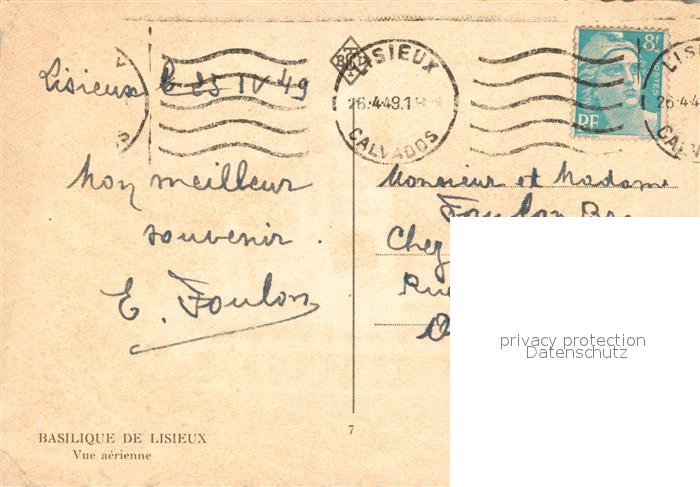 Lisieux le 25 IV 49
LISIEUX
26.4.49.1
CALVADOS
8F
POSTES
RF
LISIEUX
26.4.4
CALV
Mon meilleur
souvenir.
E. Foulon
Monsieur et Madame
Foulon
Chez
Rue
privacy protection
Datenschutz
BASILIQUE DE LISIEUX
Vue aérienne
7